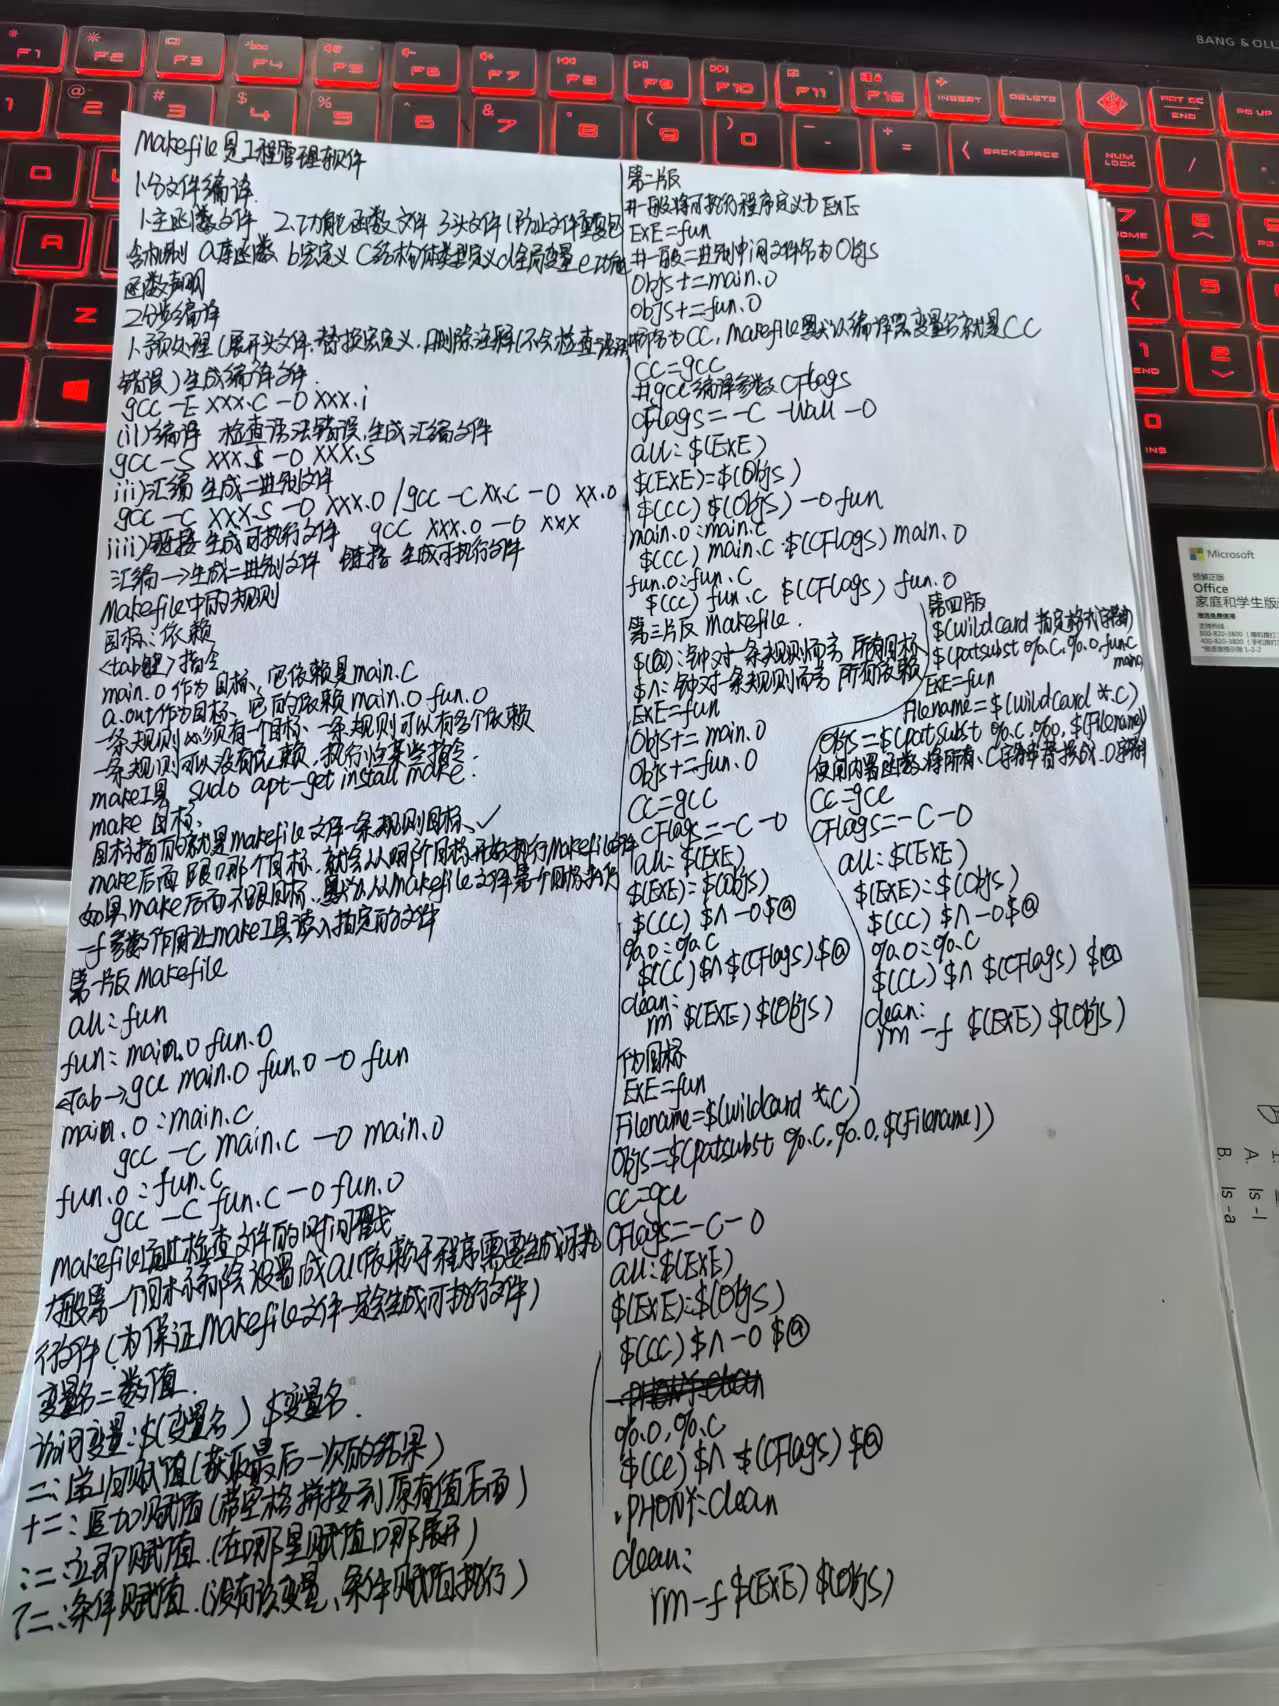 Makefile是工程管理软件
1.分文件编译
1.主函数文件 2.功能函数文件 3头文件(防止文件重复包
含机制 a库函数 b宏定义 C结构体类型定义d全局变量e功能
函数声明
2分步编译
1.预处理(展开头文件,替换宏定义,删除注释(不会检查语法
错误)生成编译文件
gcc -E xxx.c -o xxx.i
(ii)编译 检查语法错误,生成汇编文件
gcc -S xxx.i -o xxx.s
iii)汇编 生成二进制文件
gcc -c xxx.s -o xxx.o / gcc -c xx.c -o xx.o
iiii)链接 生成可执行文件 gcc xxx.o -o xxx
汇编—>生成二进制文件 链接 生成可执行文件
Makefile中的规则
目标:依赖
<tab键>指令
main.o作为目标、它依赖是main.c
a.out作为目标、它的依赖main.o fun.o
一条规则必须有一个目标、一条规则可以有多个依赖
一条规则可以没有依赖,执行这某些指令.
make工具 sudo apt-get install make.
make 目标、
目标指的就是makefile文件一条规则目标、✓
make后面跟哪个目标,就会从哪个目标开始执行Makefile文件
如果make后面不跟目标,默认从makefile文件第一个目标执行
-f参数作用让make工具读入指定的文件
第一片版 Makefile
all:fun
fun:main.o fun.o
<Tab->gcc main.o fun.o -o fun
main.o:main.c
gcc -c main.c -o main.o
fun.o:fun.c
gcc -c fun.c -o fun.o
makefile通过检查文件的时间戳
一般第一个目标都会设置成all依赖于程序需要生成可执
行文件(为保证Makefile文件一定会生成可执行文件)
变量名=数值.
访问变量:$(变量名) $变量名.
=:递归赋值(获取最后一次的结果)
+=:追加赋值(带空格拼接到原有值后面)
:=:立即赋值.(在哪里赋值哪展开)
?=:条件赋值.(没有该变量、条件赋值执行)
第二片版
#一般将可执行程序定义为EXE
EXE=fun
#一般二进制中间文件名为Objs
Objs+=main.o
objs+=fun.o
命名为CC,makefile默认编译器变量名就是CC
CC=gcc
#gcc编译参数CFlags
CFlags=-c -Wall -o
all:$(EXE)
$(EXE)=$(Objs)
$(CC)$(Objs)-o fun
main.o:main.c
$(CC) main.c $(CFlags) main.o
fun.o:fun.c
$(CC) fun.c $(CFlags) fun.o
第三片版 Makefile.
$(@):针对一条规则而言 所有目标
$^:针对一条规则而言 所有依赖
EXE=fun
Objs+= main.o
Objs+=fun.o
CC=gcc
CFlags=-c -o
all:$(EXE)
$(EXE):$(Objs)
$(CC) $^ -o $@
%.o:%.c
$(CC)$^$(CFlags)$@
clean:
rm $(EXE)$(Objs)
第四片版
$(wildcard 指定格式字符串)
$(patsubst %.c,%.o,fun.c
main.c
EXE=fun
Filename=$(wildcard *.c)
Objs=$(patsubst %.c,%.o,$(Filename))
使用内置函数将所有.c字符串替换成.o字符串
CC=gcc
CFlags=-c -o
all:$(EXE)
$(EXE):$(Objs)
$(CC)$^-o$@
%.o:%.c
$(CC)$^ $(CFlags) $@
clean:
rm -f $(EXE)$(Objs)
伪目标
EXE=fun
Filename=$(wildcard *.c)
Objs=$(patsubst %.c,%.o,$(Filename))
CC=gcc
CFlags=-c -o
all:$(EXE)
$(EXE):$(Objs)
$(CC)$^ -o $@
%.o,%.c
$(CC)$^ $(CFlags) $@
.PHONY:clean
clean:
rm -f $(EXE) $(Objs)
BANG & OLU
Microsoft
Office
家庭和学生版
A. ls -l
B. ls -a